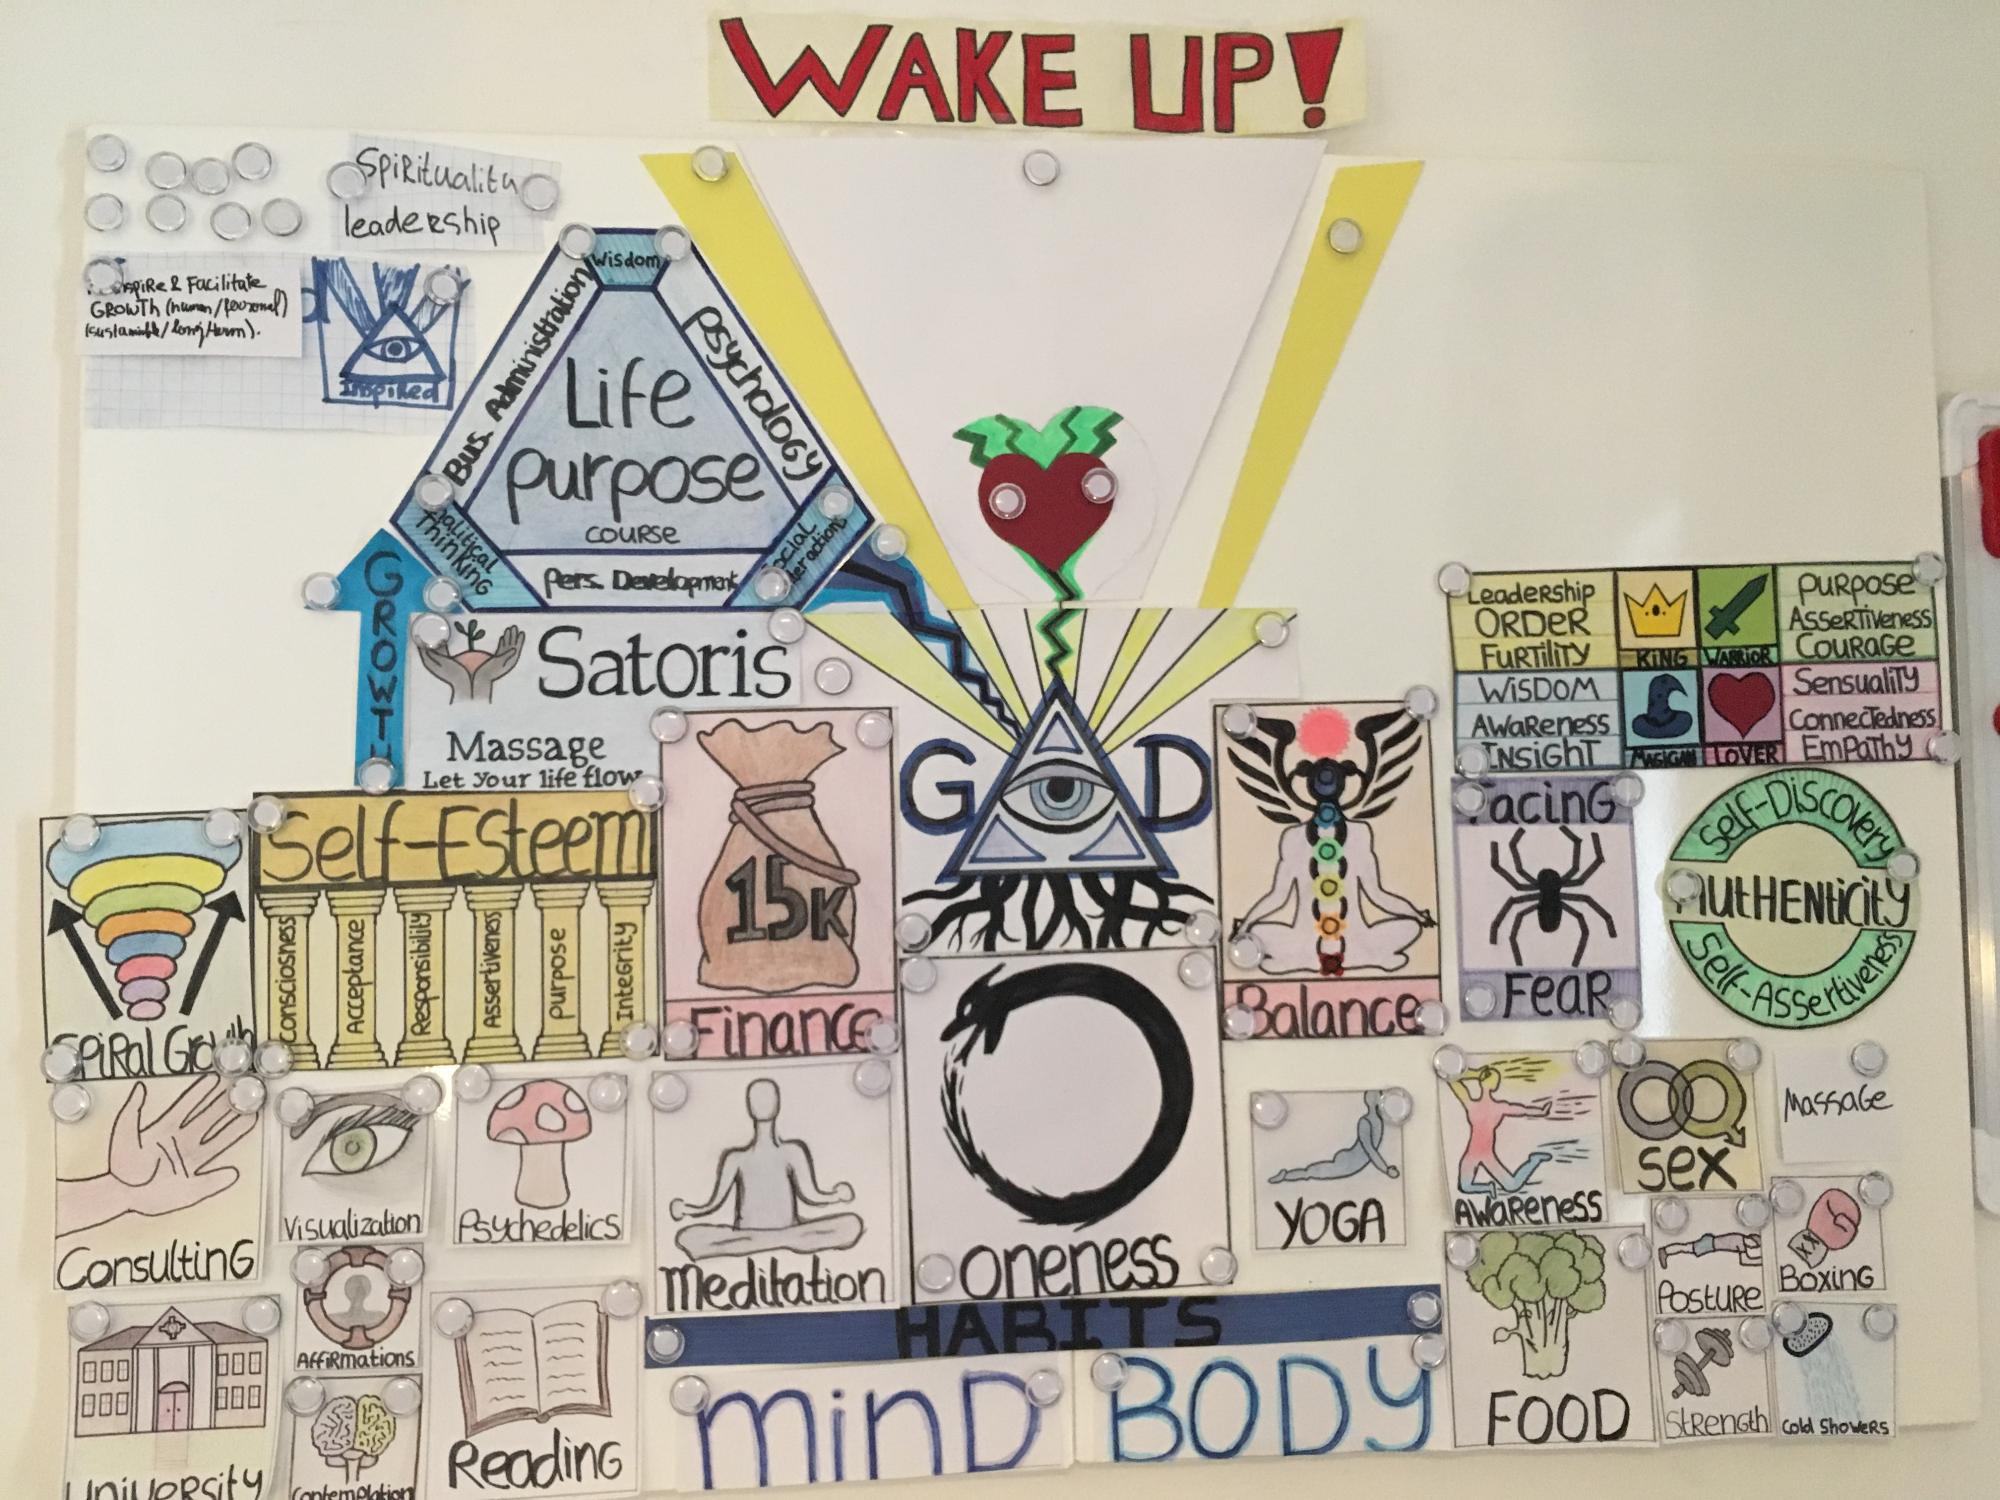 WAKE UP!
Spirituality
leadership
& Facilitate
GROWTH (human/personal)
(sustainable/long term).
Inspired
Wisdom
Bus. Administration
Psychology
Life
purpose
course
Thinking
Social
Pers. Development
GROWTH
Satoris
Massage
Let your life flow
Leadership
ORDER
FURTILITY
KING
WARRIOR
PURPOSE
AsserTiveness
Courage
WISDOM
AWareness
INSIGHT
MAGICAN
LOVER
Sensuality
Connectedness
Empathy
Self-Esteem
Consciosness
Acceptance
Responsibility
Assertiveness
Purpose
Integrity
15K
Finance
GOD
Balance
Facing
Fear
Self-Discovery
AUTHENticity
Self-Assertiveness
Spiral Growth
Consulting
Visualization
Psychedelics
Meditation
oneness
YOGA
AWAReness
sex
Massage
Affirmations
Posture
Boxing
HABITS
University
Contemplation
Reading
MIND
BODY
FOOD
Strength
Cold Showers